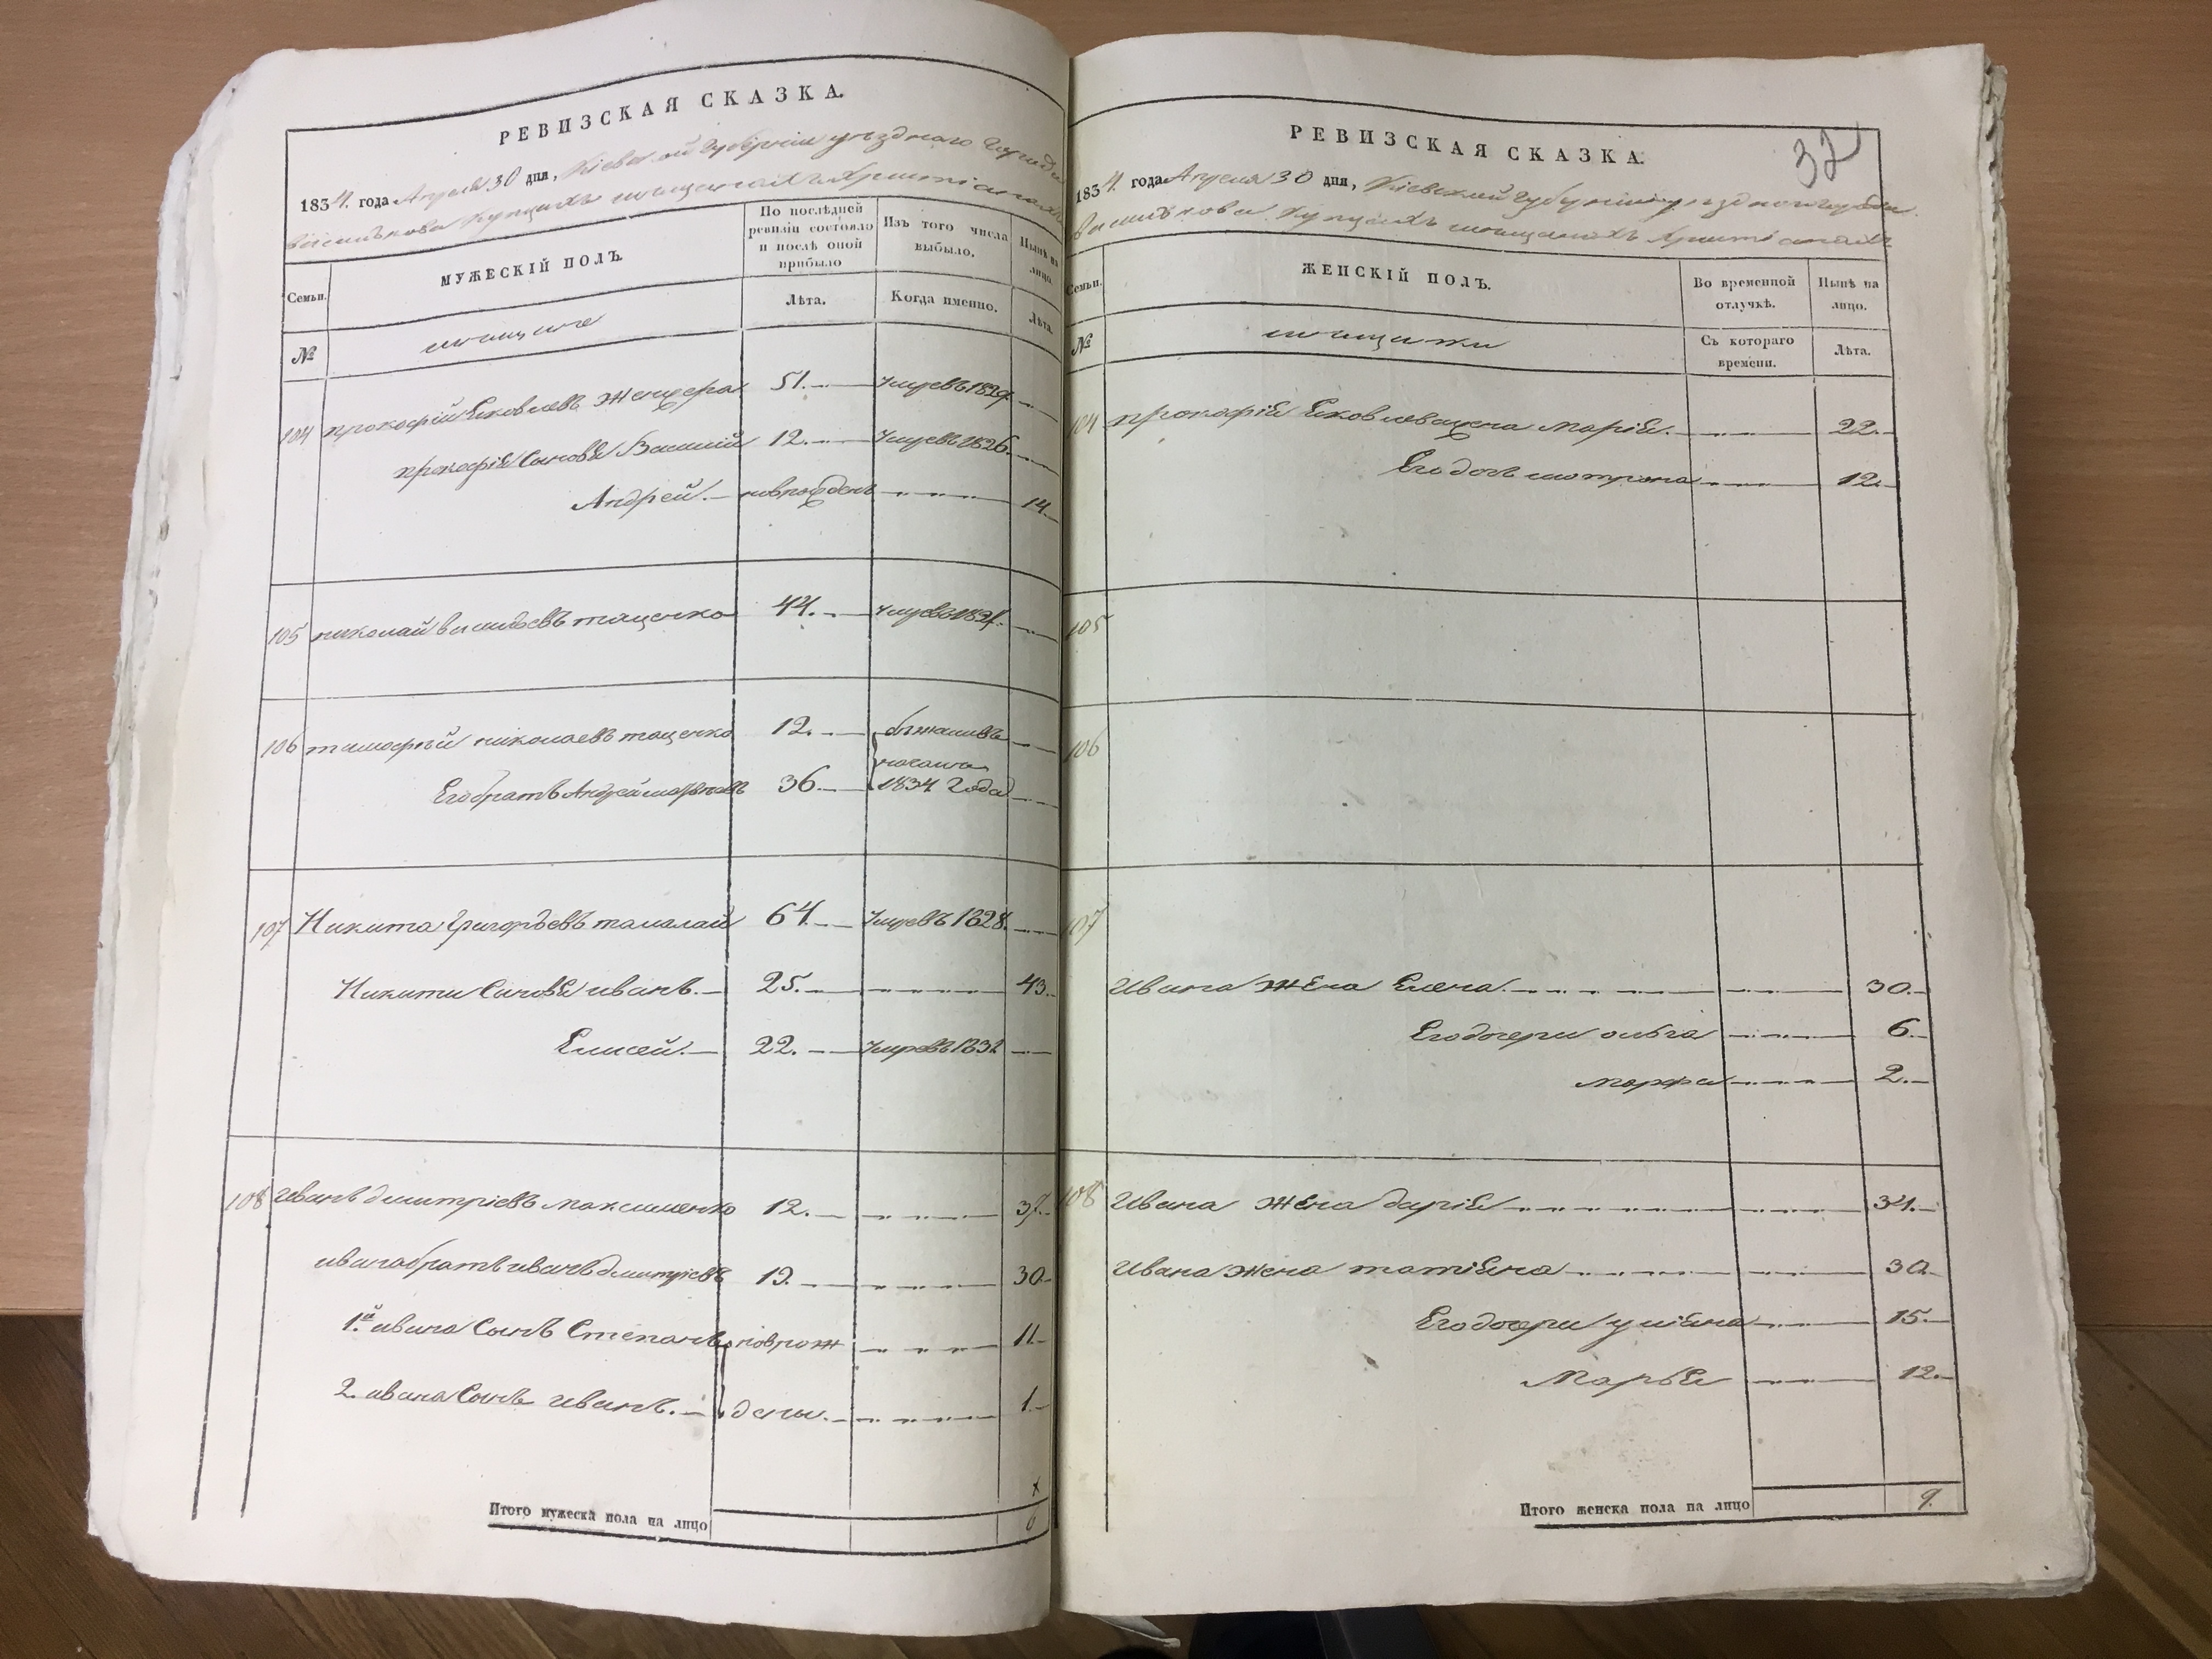 РЕВИЗСКАЯ СКАЗКА.
1834. года Апреля 30 дня, Кіевской Губерніи уезднаго Города
Василькова Купцахъ мещанахъ Христіанахъ
Семьи.
МУЖЕСКІЙ ПОЛЪ.
По послѣдней ревизіи состояло и послѣ оной прибыло
Изъ того числа выбыло.
Нынѣ на лицо.
Лѣта.
Когда именно.
Лѣта.
№
мещане
104 прокофій Яковлевъ 51. умревъ 1829
прокофія Сыновья Василий 12. умревъ 1826.
Андрей. новрожденъ 14
105 николай васильевъ таценко 44. умревъ
106 тимофей николаевъ таценко 12. бежавшъ
Его братъ Андрей 36 1834 Года
107 Никита Григорьевъ тамалай 64. умревъ 1828.
Никиты Сыновья иванъ. 25. 43.
Елисей. 22. умревъ
108 Иванъ дмитріевъ максименко 12.
ивана братъ иванъ дмитріевъ 30
1.й ивана Сынъ Степанъ новрож 11
2. ивана Сынъ иванъ. дены. 1.
Итого мужеска пола на лицо 6
РЕВИЗСКАЯ СКАЗКА.
32
1834. года Апреля 30 дня, Кіевской Губерніи уезднаго города
Василькова Купцахъ мещанахъ Христіанахъ
Семьи.
ЖЕНСКІЙ ПОЛЪ.
Во временной отлучкѣ.
Нынѣ на лицо.
№
мещанки
Съ котораго времени.
Лѣта.
104 прокофія Яковлева жена марія. 22.
Его дочь мотрона 12.
105
106
107
Ивана жена Елена. 30.
Его дочери ольга 6.
марфа 2.
108 Ивана жена дарія 34.
Ивана жена татіяна 30.
Его дочери уліяна 15.
Марья 12.
Итого женска пола на лицо 9.